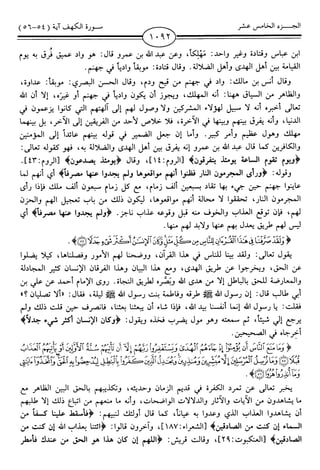 الجـــزء الخامس عشر
١٠٩٢
سورة الكهف آية (٥٤-٥٦)
ابن عباس وقتادة وغير واحد: مَهْلِكاً، وعن عبد الله بن عمرو قال: هو واد عميق فُرق به يوم
القيامة بين أهل الهدى وأهل الضلالة. وقال قتادة: موبقاً وادياً في جهنم.
وقال أنس بن مالك: واد في جهنم من قيح ودم، وقال الحسن البصري: موبقاً: عداوة،
والظاهر من السياق ههنا: أنه المهلك، ويجوز أن يكون وادياً في جهنم أو غيره، إلا أن الله
تعالى أخبره أنه لا سبيل لهؤلاء المشركين ولا وصول لهم إلى آلهتهم التي كانوا يزعمون في
الدنيا، وأنه يفرق بينهم وبينها في الآخرة، فلا خلاص لأحد من الفريقين إلى الآخر، بل بينهما
مهلك وهول عظيم وأمر كبير. وأما إن جعل الضمير في قوله بينهم عائداً إلى المؤمنين
والكافرين كما قال عبد الله بن عمرو إنه يفرق بين أهل الهدى والضلالة به، فهو كقوله تعالى:
﴿ويوم تقوم الساعة يومئذ يتفرقون﴾ [الروم: ١٤]، وقال ﴿يومئذ يصدعون﴾ [الروم: ٤٣].
وقوله: ﴿ورأى المجرمون النار فظنوا أنهم مواقعوها ولم يجدوا عنها مصرفاً﴾ أي أنهم لما
عاينوا جهنم حين جيء بها تقاد بسبعين ألف زمام، مع كل زمام سبعون ألف ملك فإذا رأى
المجرمون النار، تحققوا لا محالة أنهم مواقعوها، ليكون ذلك من باب تعجيل الهم والحزن
لهم، فإن توقع العذاب والخوف منه قبل وقوعه عذاب ناجز. ﴿ولم يجدوا عنها مصرفاً﴾ أي
ليس لهم طريق يعدل بهم عنها ولابد لهم منها.
﴿وَلَقَدْ صَرَّفْنَا فِي هَٰذَا الْقُرْآنِ لِلنَّاسِ مِن كُلِّ مَثَلٍ وَكَانَ الْإِنسَانُ أَكْثَرَ شَيْءٍ جَدَلًا ﴾.
يقول تعالى: ولقد بينا للناس في هذا القرآن، ووضحنا لهم الأمور وفصلناها، كيلا يضلوا
عن الحق، ويخرجوا عن طريق الهدى، ومع هذا البيان وهذا الفرقان الإنسان كثير المجادلة
والمعارضة للحق بالباطل إلا من هدى الله وبَصَّره لطريق النجاة. روى الإمام أحمد عن علي بن
أبي طالب قال: إن رسول الله ﷺ طرقه وفاطمة بنت رسول الله ﷺ ليلة، فقال: «ألا تصليان ؟»
فقلت: يا رسول الله إنما أنفسنا بيد الله، فإذا شاء أن يبعثنا بعثنا، فانصرف حين قلت ذلك ولم
يرجع إلي شيئاً، ثم سمعته وهو مول يضرب فخذه ويقول: ﴿وكان الإنسان أكثر شيء جدلاً﴾
أخرجاه في الصحيحين.
﴿وَمَا مَنَعَ النَّاسَ أَن يُؤْمِنُوا إِذْ جَاءَهُمُ الْهُدَىٰ وَيَسْتَغْفِرُوا رَبَّهُمْ إِلَّا أَن تَأْتِيَهُمْ سُنَّةُ الْأَوَّلِينَ أَوْ يَأْتِيَهُمُ الْعَذَابُ
يخبر تعالى عن تمرد الكفرة في قديم الزمان وحديثه، وتكذيبهم بالحق البين الظاهر مع
ما يشاهدون من الآيات والآثار والدلالات الواضحات، وأنه ما منعهم من اتباع ذلك إلا طلبهم
أن يشاهدوا العذاب الذي وعدوا به عياناً، كما قال أولئك لنبيهم: ﴿فأسقط علينا كسفاً من
السماء إن كنت من الصادقين﴾ [الشعراء: ١٨٧]، وآخرون قالوا: ﴿ائتنا بعذاب الله إن كنت من
الصادقين﴾ [العنكبوت: ٢٩]، وقالت قريش: ﴿اللهم إن كان هذا هو الحق من عندك فأمطر